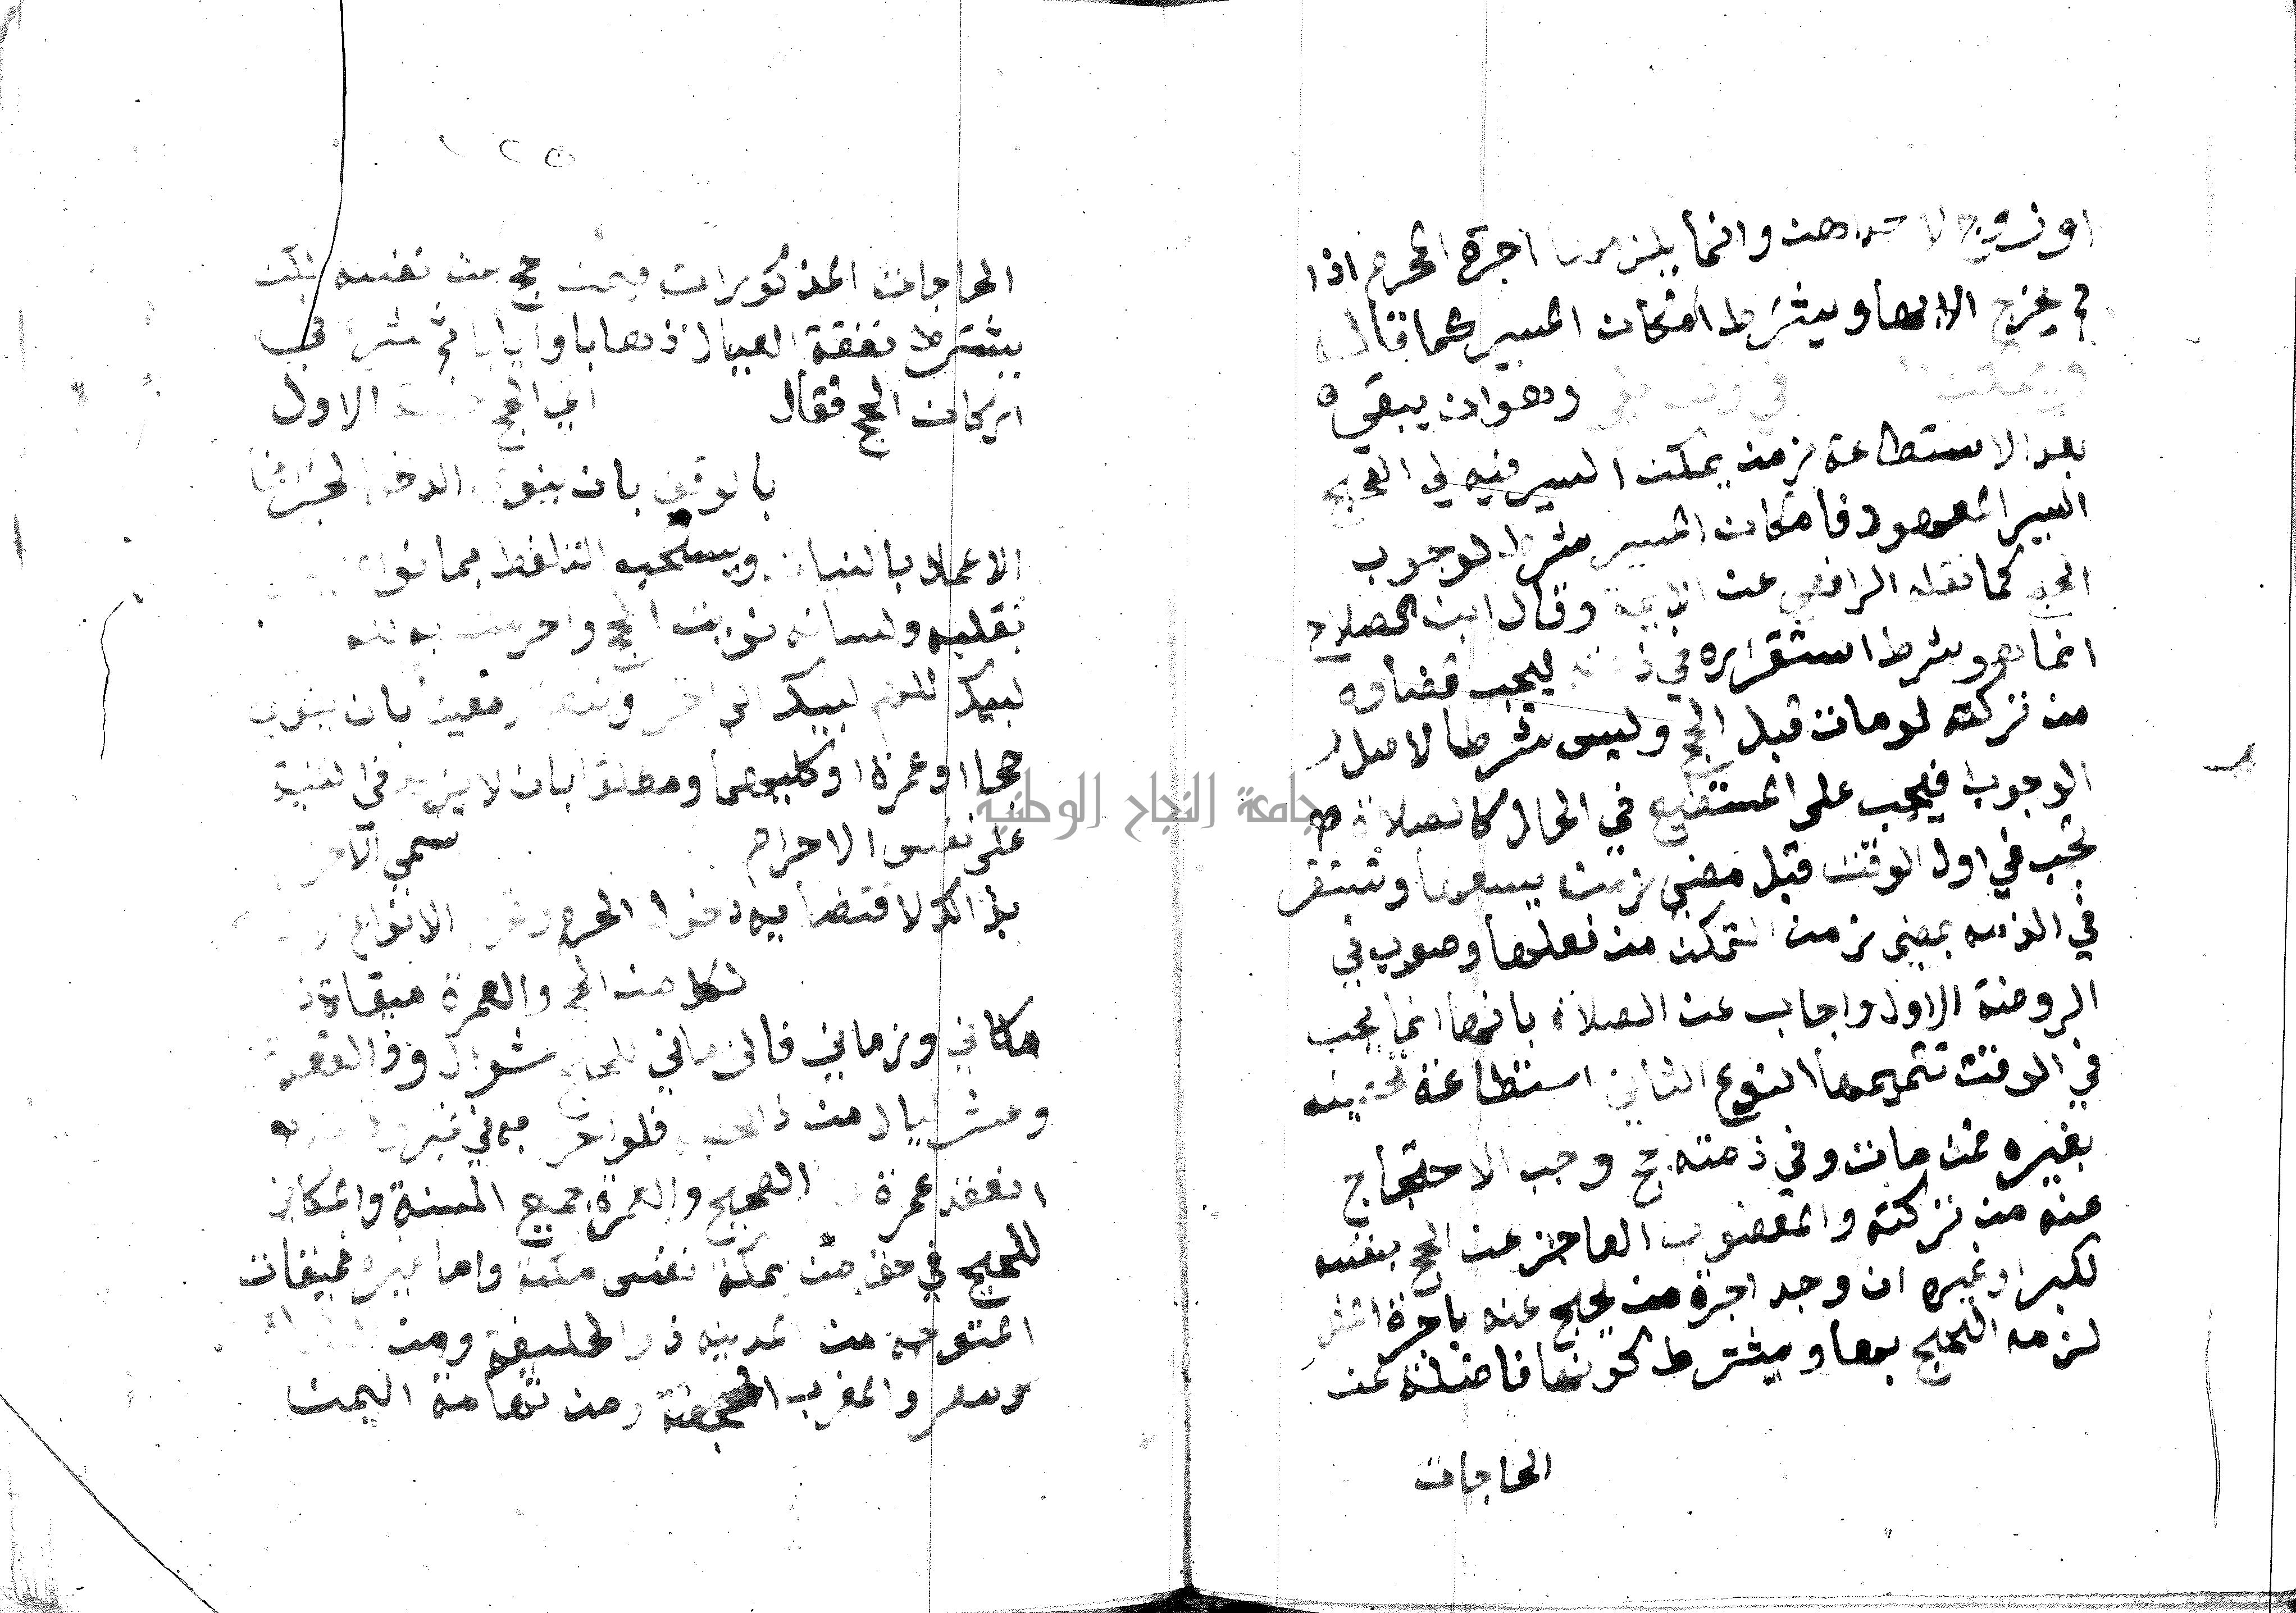 او زوج لاحداهن وانما يلزمها اجرة المحرم اذا
لم يخرج الا بها ويشترط امكان المسير كما قال
وهوان يبقي
بعد الاستطاعة زمن يمكن السير فيه لي الحج
السير المعهود فامكان المسير شرط لوجوب
الحج كما نقله الرافعي عن الايمة وقال ابن الصلاح
انما هو شرط استقراره في ذمته ليجب قضاوه
من تركته لو مات قبل الحج وليس شرطا لاصل
الوجوب فيجب على المستطيع في الحال كالصلاة
تجب في اول الوقت قبل مضي زمن يسعها وتستقر
في الذمه بمضي زمن التمكن من فعلها وصوب في
الروضة الاول واجاب عن الصلاة بانها انما يجب
في الوقت تتميمها النوع الثاني استطاعة
بغيره فمن مات وفي ذمته حج وجب الاحتجاج
عنه من تركته والمعضوب العاجز عن الحج بنفسه
لكبر او غيره ان وجد اجرة من يحج عنه باجرة المثل
لزمه الحج بها ويشترط كونها فاضلة عن
الحاجات
١٢٥
الحاجات المذكورات فيمن حج عن نفسه لكن
يشترط نفقة العيال ذهابا وايابا ثم شرع في
اركان الحج فقال اي الحج الاول
بان ينوي الدخول
الاعمال بالنيات ويستحب التلفظ بما نواه
بقلبه ولسانه نويت الحج واحرمت به لله
لبيك اللهم لبيك الى اخره وينعقد معينا بان ينوي
حجا او عمرة او كليهما ومطلقا بان لا يزيد في النية
على نفس الاحرام سمي الاحرام
بذالك لاقتضايه دخول الحرم الانواع
لكل من الحج والعمرة ميقاة
مكاني وزماني فالزماني للحج شوال وذالقعدة
وعشر ليال من ذالحجة فلو احرم به في غير
انعقد عمرة الصحيح والعمرة جميع السنة والمكاني
للحج في حق من بمكة نفس مكة واما غيره فميقات
المتوجه من المدينه ذو الحليفة ومن
ومصر والمغرب الجحفة ومن تهامة اليمن
جامعة النجاح الوطنية